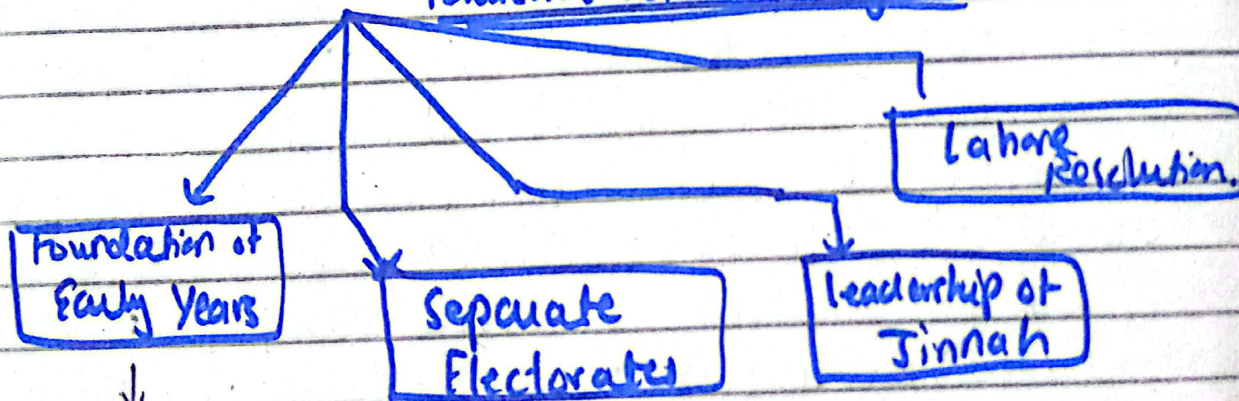 Lahore
Resolution.
Foundation of
Early Years
Separate
Electorates
Leadership of
Jinnah